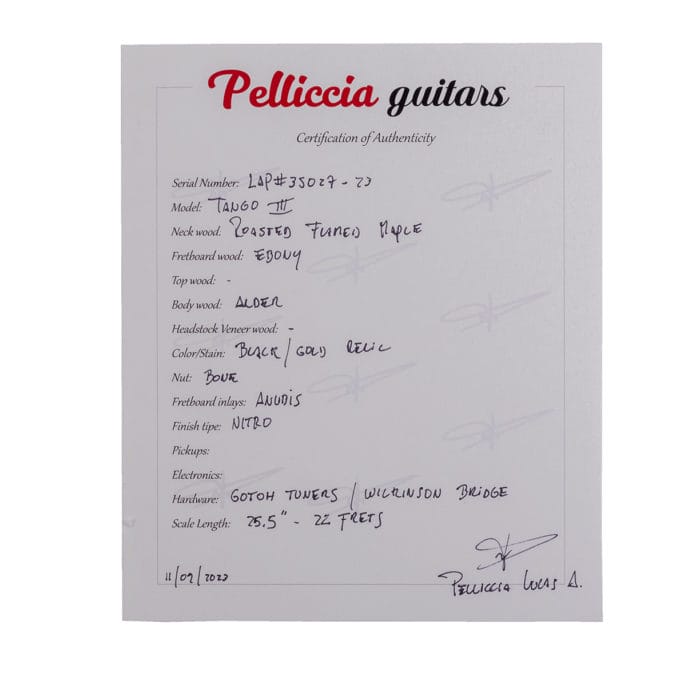 Pelliccia guitars
Certification of Authenticity
Serial Number: LAP#35027-23
Model: TANGO III
Neck wood. ROASTED FLAMED MAPLE
Fretboard wood: EBONY
Top wood: -
Body wood: ALDER
Headstock Veneer wood: -
Color/Stain: BLACK/GOLD RELIC
Nut: BONE
Fretboard inlays:
Finish tipe: NITRO
Pickups:
Electronics:
Hardware: GOTOH TUNERS / WILKINSON BRIDGE
Scale Length: 25.5" - 22 FRETS
PELLICCIA LUCAS A.